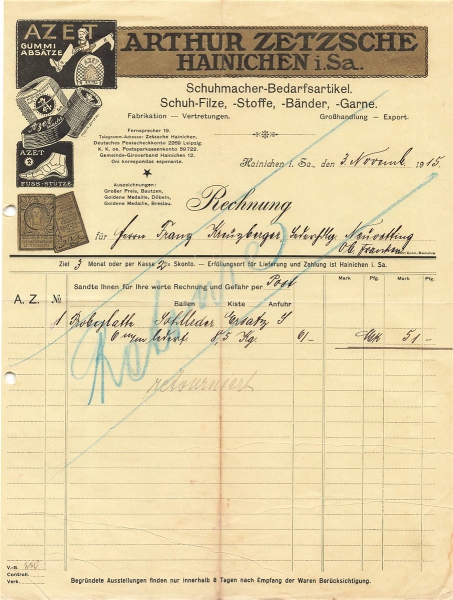 AZET
GUMMI
ABSÄTZE
Azet
AZET
FUSS-STÜTZE
ARTHUR ZETZSCHE
HAINICHEN i.Sa.
Schuhmacher-Bedarfsartikel.
Schuh-Filze, -Stoffe, -Bänder, -Garne.
Fabrikation — Vertretungen. Großhandlung — Export.
Fernsprecher 19.
Telegramm-Adresse: Zetzsche Hainichen.
Deutsches Postscheckkonto 2269 Leipzig.
K. K. oe. Postsparkassenkonto 59722.
Gemeinde-Giroverband Hainichen 12.
Oni korrespondas esperante.
Hainichen i. Sa., den 3. Novemb. 1915.
Auszeichnungen:
Großer Preis, Bautzen,
Goldene Medaille, Döbeln,
Goldene Medaille, Breslau.
Rechnung
für Herrn Franz Kreuzberger, Lederhdlg Neuötting
Ob. Franken
Ziel 3 Monat oder per Kassa 2% Skonto. — Erfüllungsort für Lieferung und Zahlung ist Hainichen i. Sa.
Sandte Ihnen für Ihre werte Rechnung und Gefahr per Post
Mark Pfg. Mark Pfg.
A. Z. No Ballen Kiste Anfuhr
1 Sohlleder Ersatz I
6 m/m 8,5 Kg. 6/- Mk 51 -
Retour
retourniert
V.-B.
Controll.
Verk.
Begründete Ausstellungen finden nur innerhalb 8 Tagen nach Empfang der Waren Berücksichtigung.